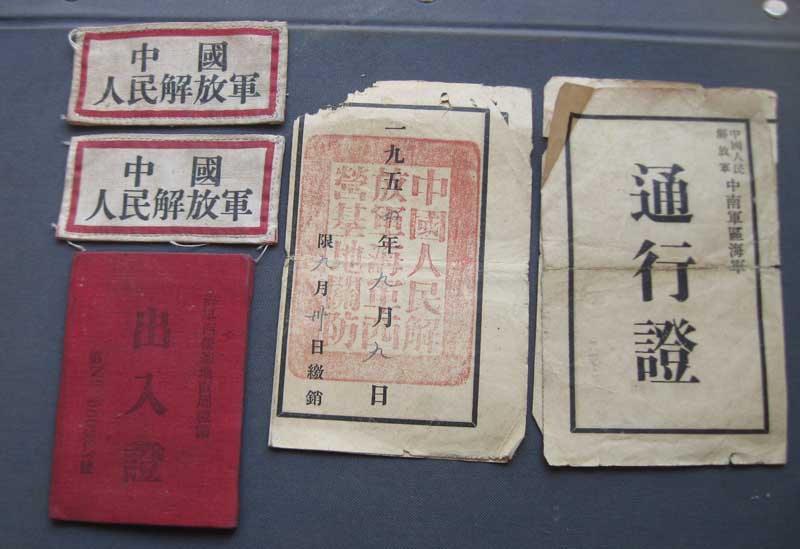 中國
人民解放軍
中國
人民解放軍
出入證
一九五 年九月九日
限九月卅日繳銷
中國人民解
放軍海軍西
營基地關防
中國人民
解放軍
中南軍區海軍
通行證